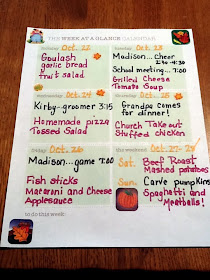 THE WEEK AT A GLANCE CALENDAR
Monday Oct. 22
Goulash
garlic bread
fruit salad
Tuesday Oct. 23
Madison... Cheer
2:30-4:30
School meeting... 7:00
Grilled Cheese
Tomato Soup
Wednesday Oct. 24
Kirby-groomer 3:15
Homemade pizza
Tossed Salad
Thursday Oct. 25
Grandpa comes
for dinner!
Church Take out
Stuffed chicken
friday Oct. 26
Madison... game 7:00
Fish sticks
Macaroni and Cheese
Applesauce
the weekend Oct. 27-28
Sat. Beef Roast
Mashed potatoes
Sun. Carve pumpkins
Spaghetti and
Meatballs!
to do this week: